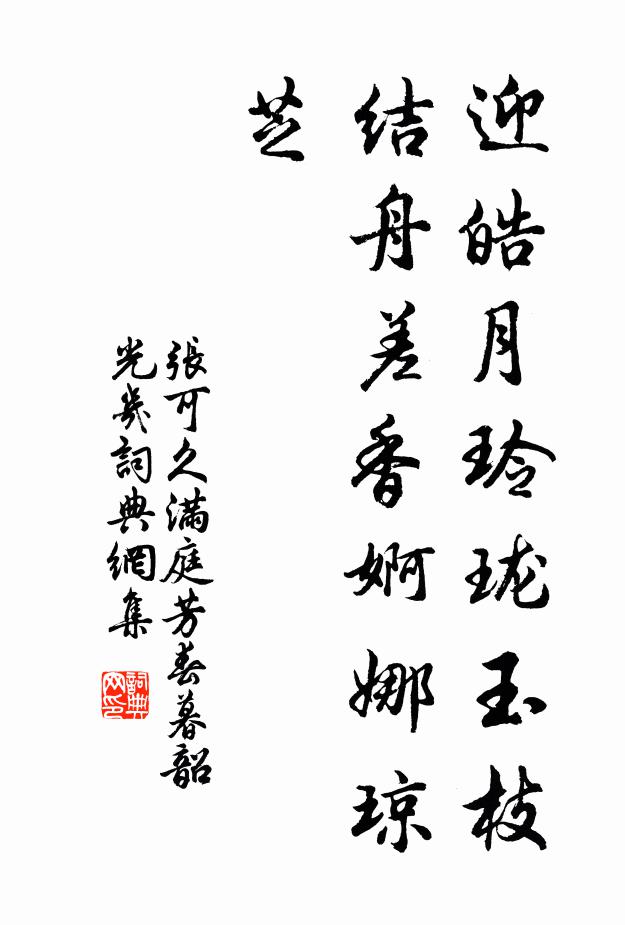 迎皓月玲珑玉枝
结舟差香婀娜琼
芝
張可久满庭芳春暮韶
光幾詞典網集
詞典
网印